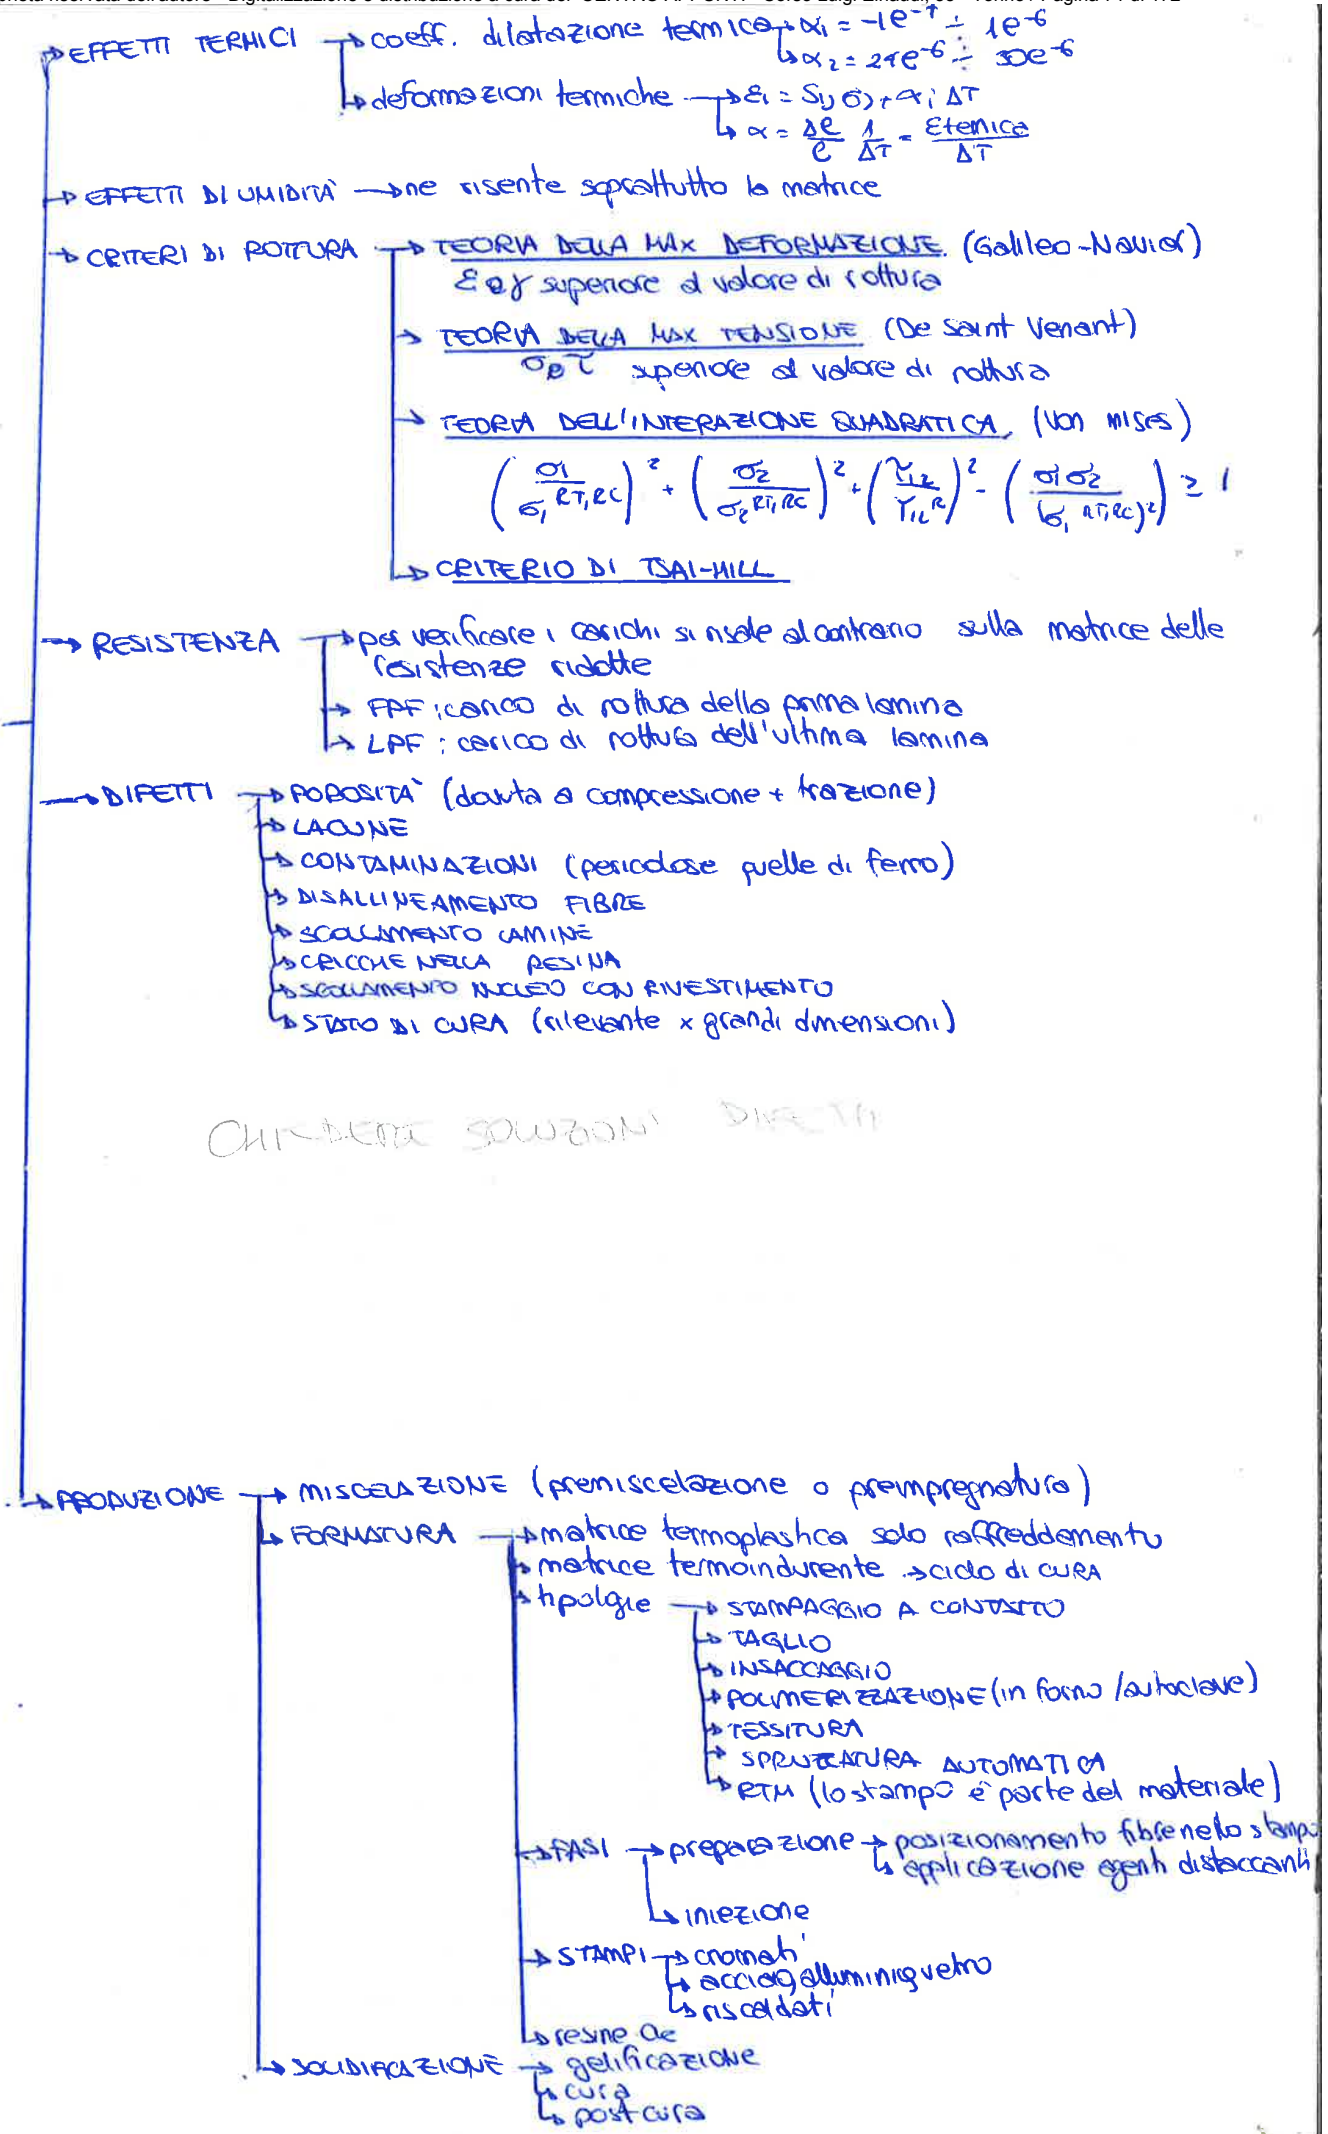 EFFETTI TERMICI → coeff. dilatazione termica → α₁ = -1e⁻⁷ ÷ 1e⁻⁶
↳ α₂ = 27e⁻⁶ ÷ 30e⁻⁶
↳ deformazioni termiche → εᵢ = Sᵢⱼ σⱼ + αᵢ ΔT
↳ α = Δl/l 1/ΔT = εtermica/ΔT
→ EFFETTI DI UMIDITÀ → ne risente soprattutto la matrice
→ CRITERI DI ROTTURA → TEORIA DELLA MAX DEFORMAZIONE (Galileo-Navier)
ε e γ superiore al valore di rottura
→ TEORIA DELLA MAX TENSIONE (De Saint Venant)
σ e τ superiore al valore di rottura
→ TEORIA DELL'INTERAZIONE QUADRATICA (Von mises)
(σ₁/σ₁ᴿᵀ,ᴿᶜ)² + (σ₂/σ₂ᴿᵀ,ᴿᶜ)² + (τ₁₂/τ₁₂ᴿ)² - (σ₁σ₂/(σ₁ᴿᵀ,ᴿᶜ)²) ≥ 1
↳ CRITERIO DI TSAI-HILL
→ RESISTENZA → per verificare i carichi si risale al contrario sulla matrice delle
resistenze ridotte
→ FPF: carico di rottura della prima lamina
→ LPF: carico di rottura dell'ultima lamina
→ DIFETTI → POROSITÀ (dovuta a compressione + trazione)
→ LACUNE
→ CONTAMINAZIONI (pericolose quelle di ferro)
→ DISALLINEAMENTO FIBRE
→ SCOLLAMENTO LAMINE
→ CRICCHE NELLA RESINA
→ SCOLLAMENTO NUCLEO CON RIVESTIMENTO
↳ STATO DI CURA (rilevante x grandi dimensioni)
CHIEDERE SOLUZIONI DIFETTI
→ PRODUZIONE → MISCELAZIONE (premiscelazione o preimpregnatura)
↳ FORMATURA → matrice termoplastica solo raffreddamento
→ matrice termoindurente → ciclo di CURA
→ tipolgie → STAMPAGGIO A CONTATTO
→ TAGLIO
→ INSACCAGGIO
→ POLIMERIZZAZIONE (in forno/autoclave)
→ TESSITURA
→ SPRUZZATURA AUTOMATICA
↳ RTM (lo stampo è parte del materiale)
→ FASI → preparazione → posizionamento fibre nello stampo
↳ applicazione agenti distaccanti
↳ iniezione
→ STAMPI → cromati
↳ acciaio, alluminio, vetro
↳ riscaldati
↳ resine
↳ SOLIDIFICAZIONE → gelificazione
↳ cura
↳ post cura